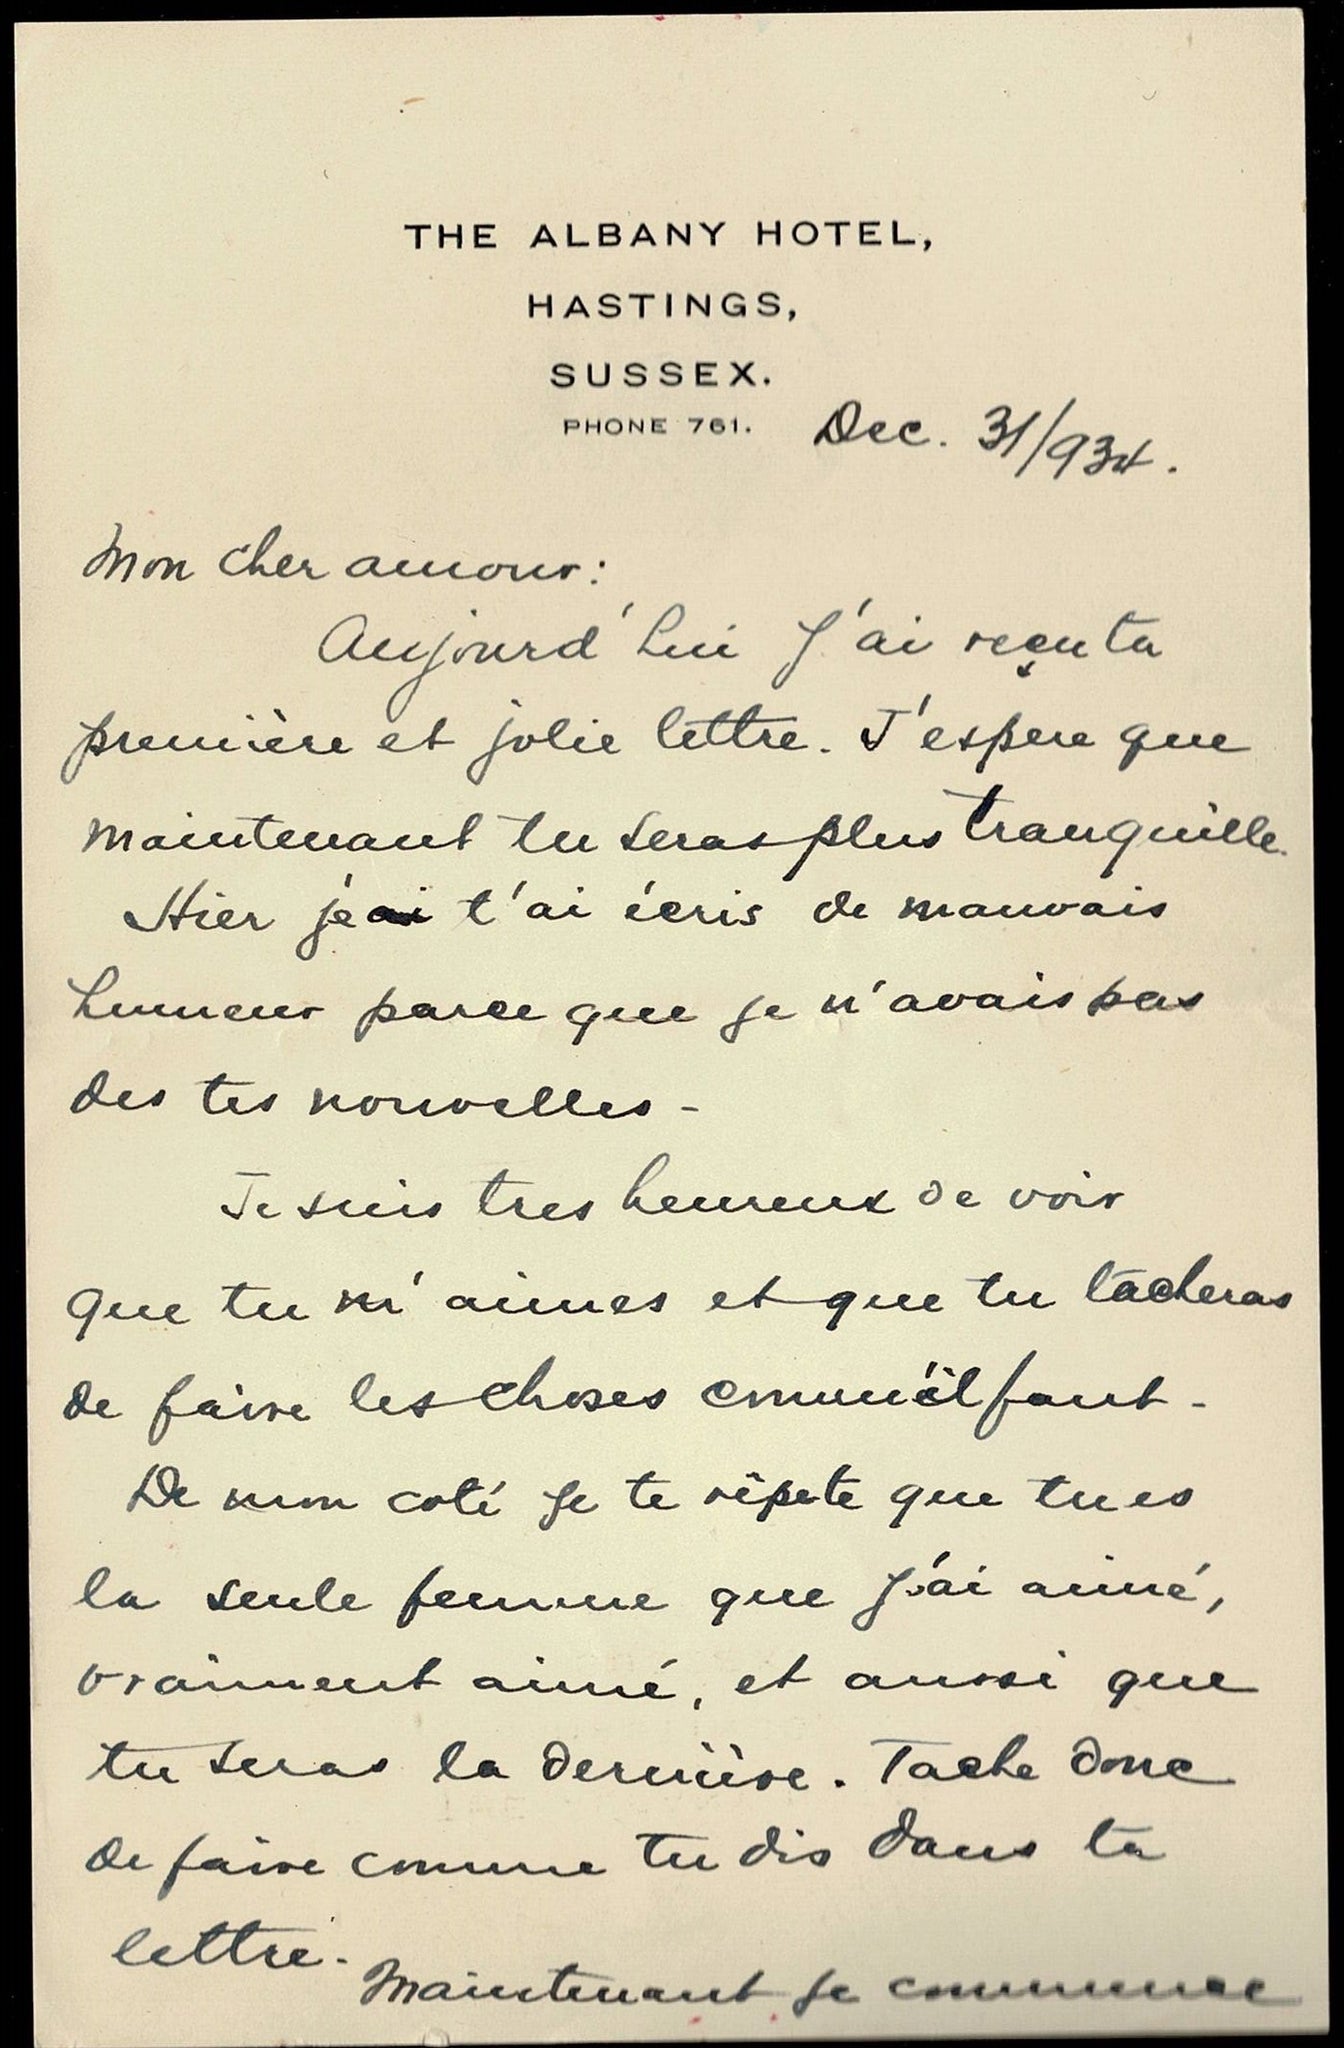 THE ALBANY HOTEL,
HASTINGS,
SUSSEX.
PHONE 761.
Dec. 31/934.
Mon cher amour:
Aujourd'hui j'ai reçu ta
première et jolie lettre. J'espere que
maintenant tu seras plus tranquille.
Hier je t'ai écris de mauvais
humeur parce que je n'avais pas
des tes nouvelles -
Je suis tres heureux de voir
que tu m'aimes et que tu tacheras
de faire les choses comm'il faut -
De mon coté je te répete que tu es
la seule femme que j'ai aimé,
vraiment aimé, et aussi que
tu seras la dernière. Tache donc
de faire comme tu dis dans ta
lettre.
Maintenant je commence